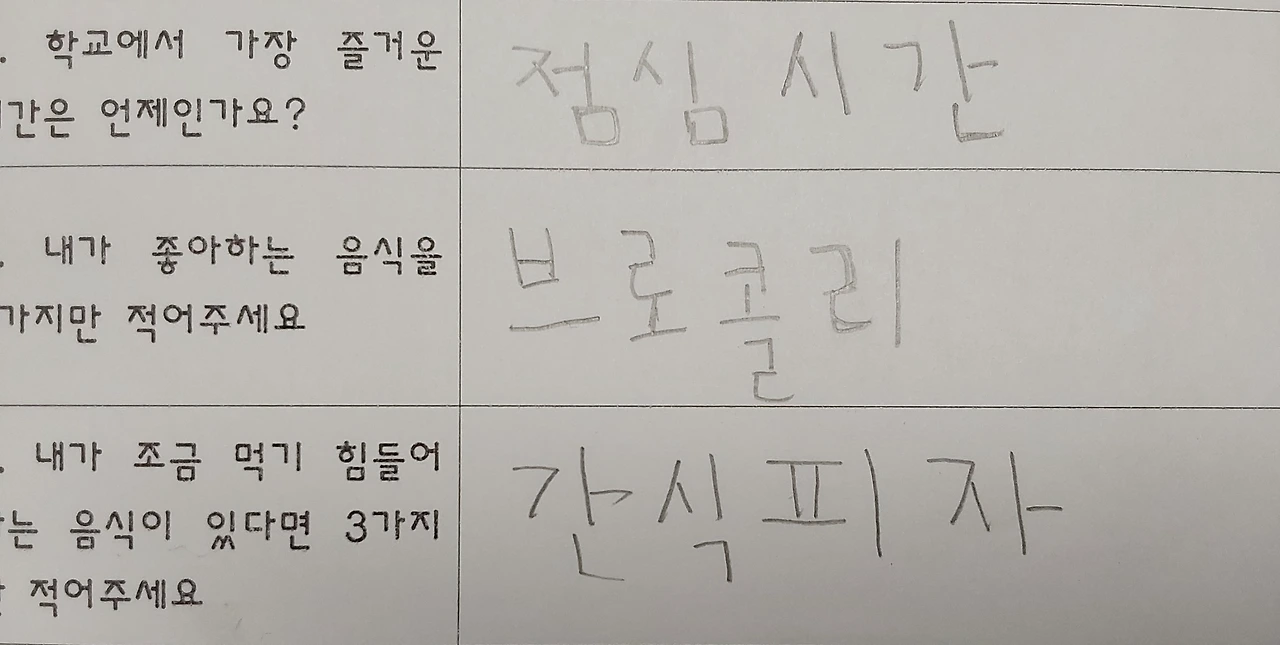 . 학교에서 가장 즐거운
간은 언제인가요?
점심시간
. 내가 좋아하는 음식을
가지만 적어주세요
브로콜리
. 내가 조금 먹기 힘들어
는 음식이 있다면 3가지
적어주세요
간식피자